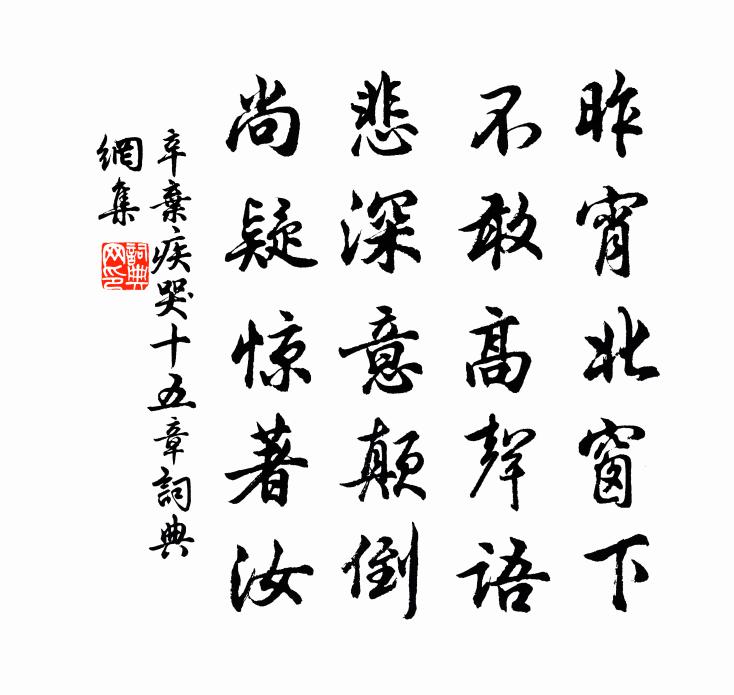 昨宵北窗下
不敢高聲語
悲深意顛倒
尚疑惊著汝
辛棄疾哭十五章詞典
網集
詞典
网印